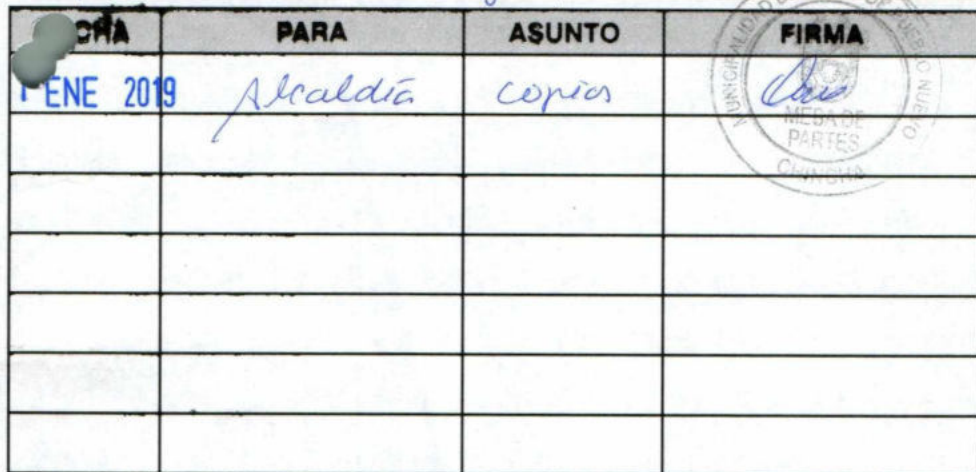 PARA ASUNTO FIRMA
ENE 2019 Alcaldía copias
MUNICIPALIDAD PUEBLO NUEVO
MESA DE
PARTES
CHINCHA